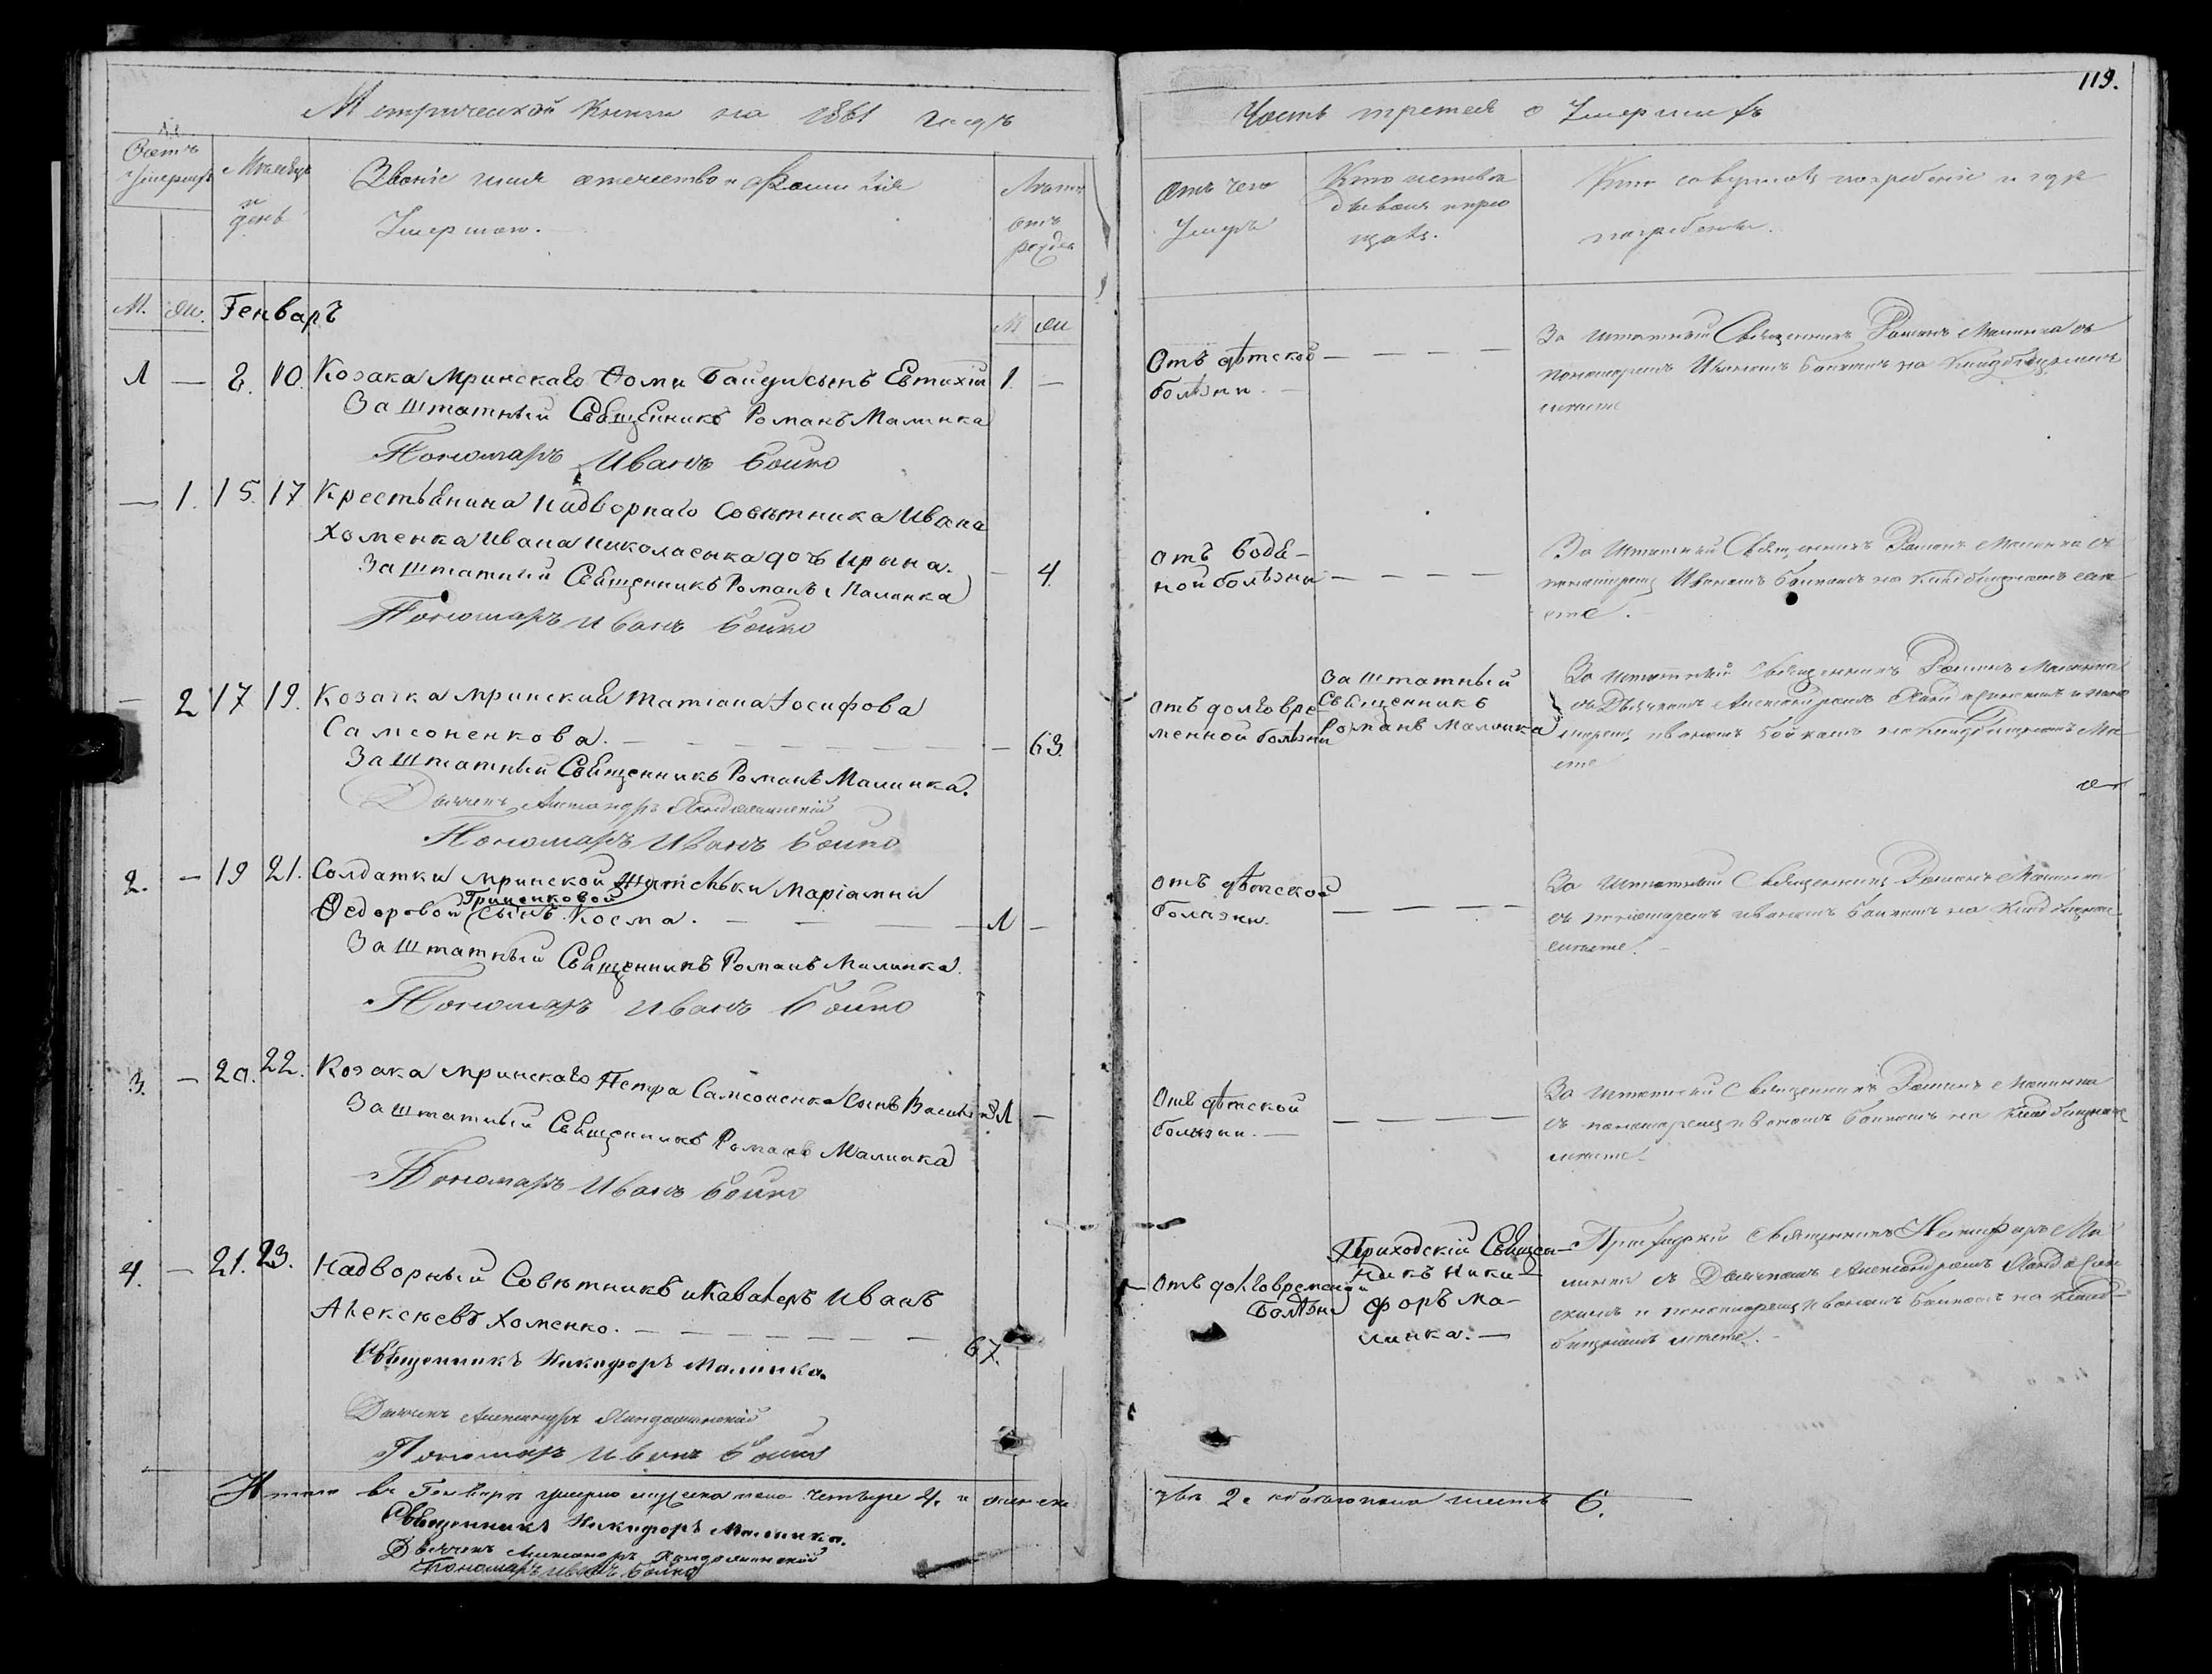 Метрической книги на 1861 годъ
Счетъ умершихъ
Мѣсяцъ и день
Званіе имя отечество и Фамилія
Умершаго.
Лѣта отъ рожден
М. Ж. Генварь
М Ж
1 — 8. 10. Козака Мринскаго Ѳомы Байды сынъ Евтихій 1. —
Заштатный Священникъ Романъ Малинка
Пономарь Иванъ Бойко
— 1. 15. 17 Крестьянина Надворнаго Совѣтника Ивана
Хоменка Ивана Николаенка дочь Ирына. — 4.
Заштатный Священникъ Романъ Малинка
Пономарь Иванъ Бойко
— 2 17 19. Козачка Мринская Татіана Іосифова
Самсоненкова. — 63.
Заштатный Священникъ Романъ Малинка.
Дьячекъ Александръ
Пономарь Иванъ Бойко
2. — 19 21. Солдатки Мринской Маріамны
Гриценковой
Ѳедоровой сынъ Косма. 1 —
Заштатный Священникъ Романъ Малинка.
Пономарь Иванъ Бойко
3. — 20. 22. Козака Мринскаго Петра Самсоненка Сынъ Василій 1 —
Заштатный Священникъ Романъ Малинка
Пономарь Иванъ Бойко
4. — 21. 23. Надворный Совѣтникъ и Кавалеръ Иванъ
Алексѣевъ Хоменко. 67.
Священникъ Никифоръ Малинка.
Дьячекъ Александръ
Пономарь Иванъ Бойко
Итого въ Генварѣ умерло мужеска пола четыре 4. и женска
Священникъ Никифоръ Малинка.
Дьячекъ Александръ
Пономарь Иванъ Бойко
119.
Часть третья о Умершихъ
Отъ чего Умеръ
Кто исповѣдывалъ и пріобщалъ.
Кто совершалъ погребеніе и гдѣ
погребены.
Отъ дѣтской
болѣзни.
Заштатный Священникъ Романъ Малинка съ
пономаремъ Иваномъ Бойкомъ на Кладбищномъ
мѣсте
отъ водя-
ной болѣзни
Заштатный Священникъ Романъ Малинка съ
пономаремъ Иваномъ Бойкомъ на Кладбищномъ мѣ-
сте.
отъ долговре-
менной болѣзни
Заштатный
Священникъ
Романъ Малинка
Заштатный Священникъ Романъ Малинка
съ Дьячкомъ Александромъ и поно
маремъ Иваномъ Бойкомъ на Кладбищномъ мѣ-
сте
отъ дѣтской
болѣзни.
Заштатный Священникъ Романъ Малинка
съ пономаремъ Иваномъ Бойкомъ на Кладбищномъ
мѣсте.
Отъ дѣтской
болѣзни. —
Заштатный Священникъ Романъ Малинка
съ пономаремъ Иваномъ Бойкомъ на Кладбищномъ
мѣсте.
Отъ долговременной
Болѣзни
Приходскій Священ-
никъ Ники-
форъ Ма-
линка. —
Приходский Священникъ Никифоръ Ма
линка съ Дьячкомъ Александромъ
и пономаремъ Иваномъ Бойкомъ на Клад-
бищномъ мѣсте.
два 2. а обоего пола шесть 6.